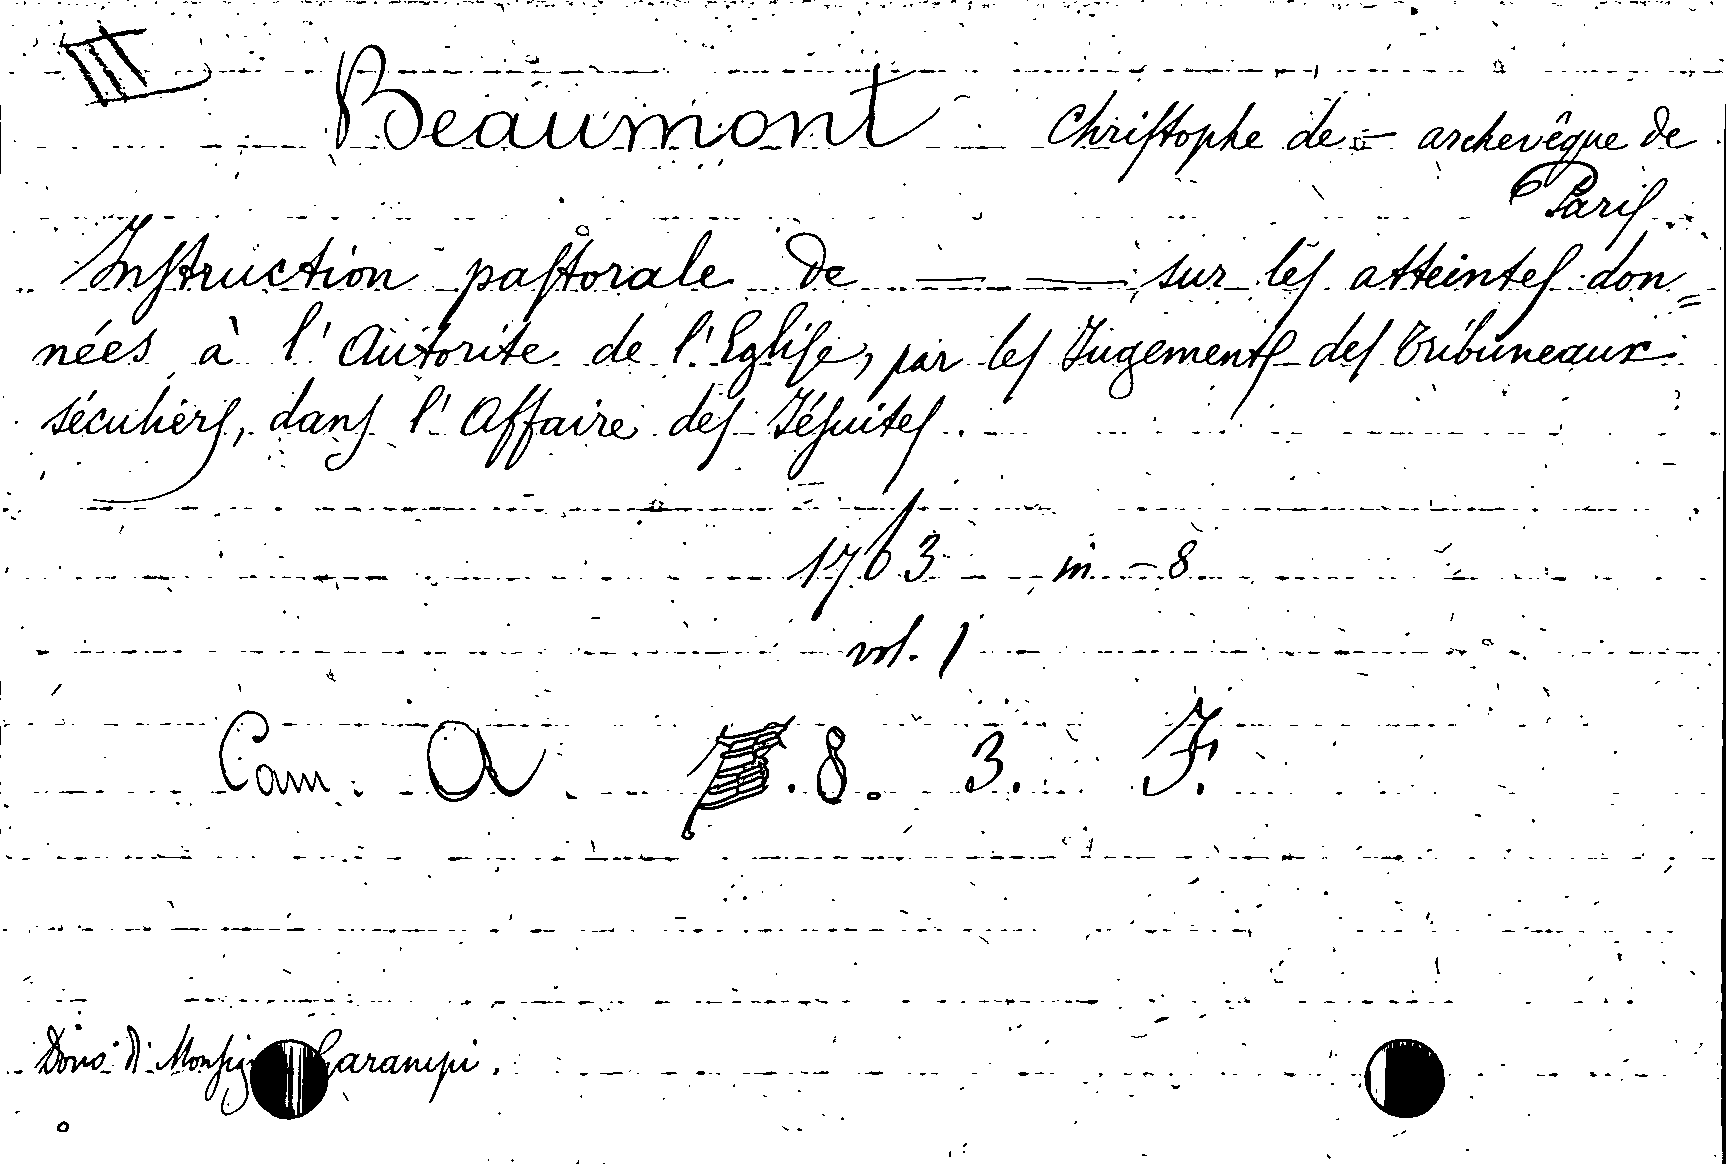 III
Beaumont Christophe de – archevêque de
Paris
Instruction pastorale de — — sur les atteintes don=
nées à l'Autorite de l'Eglise, par les Jugements des Tribuneaux
séculiers, dans l'Affaire des Jésuites.
1763 in – 8
vol. 1
Cam. A . 8. 3. F.
Dono di Garampi.